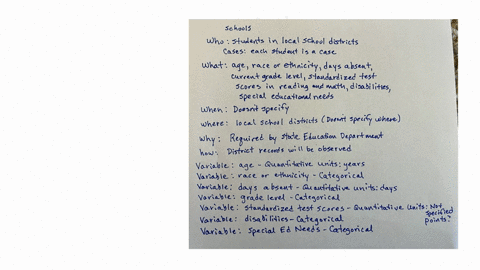 schools
Who: students in local school districts
Cases: each student is a case
What: age, race or ethnicity, days absent,
current grade level, standardized test
scores in reading and math, disabilities,
special educational needs
When: Doesn't specify
where: local school districts (Doesn't specify where)
Why: Required by State Education Department
how: District records will be observed
Variable: age - Quantitative Units: years
Variable: race or ethnicity - Categorical
Variable: days absent - Quantitative Units: days
Variable: grade level - Categorical
Variable: standardized test scores - Quantitative Units: Not
specified
points?
Variable: disabilities - Categorical
Variable: Special Ed Needs - Categorical